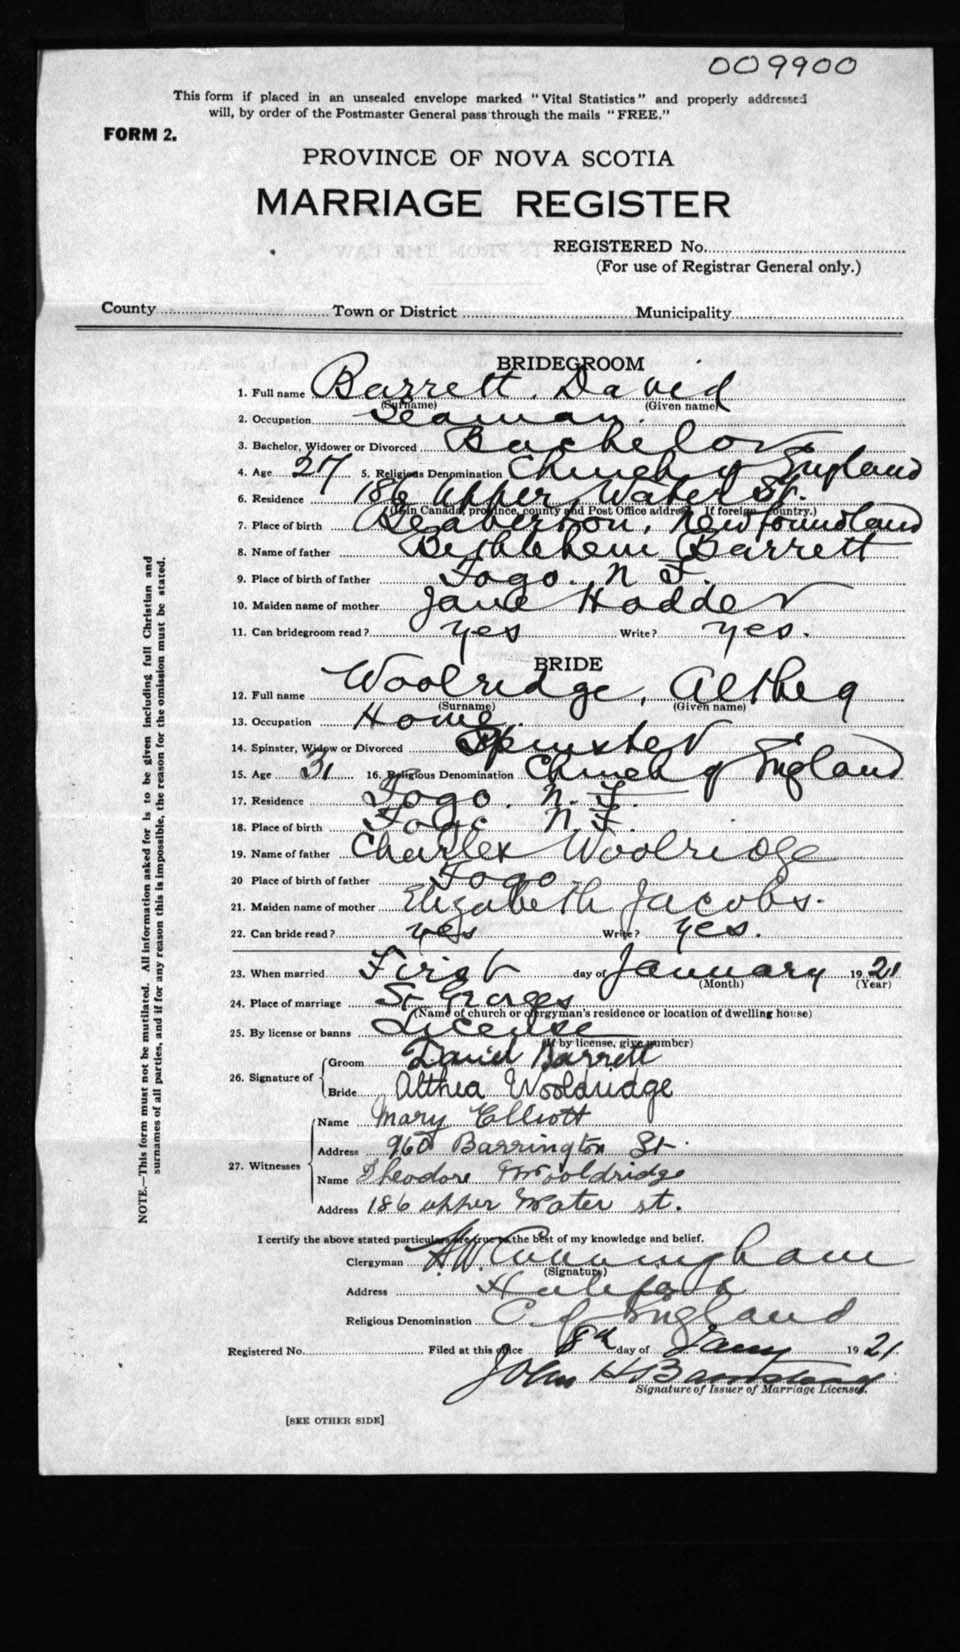 009900
This form if placed in an unsealed envelope marked "Vital Statistics" and properly addressed
will, by order of the Postmaster General pass through the mails "FREE."
FORM 2.
PROVINCE OF NOVA SCOTIA
MARRIAGE REGISTER
REGISTERED No.
(For use of Registrar General only.)
County Town or District Municipality
BRIDEGROOM
1. Full name Barrett, David
(Surname) (Given name)
2. Occupation Seaman.
3. Bachelor, Widower or Divorced Bachelor
4. Age 27 5. Religious Denomination Church of England
6. Residence 186 Upper Water St.
(If in Canada, province, county and Post Office address. If foreign country.)
7. Place of birth Newfoundland
8. Name of father Bethlehem Barrett
9. Place of birth of father Fogo. N F.
10. Maiden name of mother Jane Hodder
11. Can bridegroom read? yes Write? yes.
BRIDE
12. Full name Woolridge, Althea
(Surname) (Given name)
13. Occupation Home.
14. Spinster, Widow or Divorced Spinster
15. Age 31 16. Religious Denomination Church of England
17. Residence Fogo. N. F.
18. Place of birth Fogo N F.
19. Name of father Charles Woolridge
20 Place of birth of father Fogo
21. Maiden name of mother Elizabeth Jacobs.
22. Can bride read? yes Write? yes.
23. When married First day of January 1921
(Month) (Year)
24. Place of marriage St Georges
(Name of church or clergyman's residence or location of dwelling house)
25. By license or banns License
(If by license, give number)
26. Signature of Groom David Barrett
Bride Althea Wooldridge
27. Witnesses Name Mary Elliott
Address 960 Barrington St.
Name Theodore Wooldridge
Address 186 upper Water st.
I certify the above stated particulars are true to the best of my knowledge and belief.
Clergyman H.W. Cunningham
(Signature)
Address Halifax
Religious Denomination C. of England
Registered No. Filed at this office 8th day of Jany 1921
John H
Signature of Issuer of Marriage Licenses.
[SEE OTHER SIDE]
NOTE.—This form must not be mutilated. All information asked for is to be given including full Christian and
surnames of all parties, and if for any reason this is impossible, the reason for the omission must be stated.